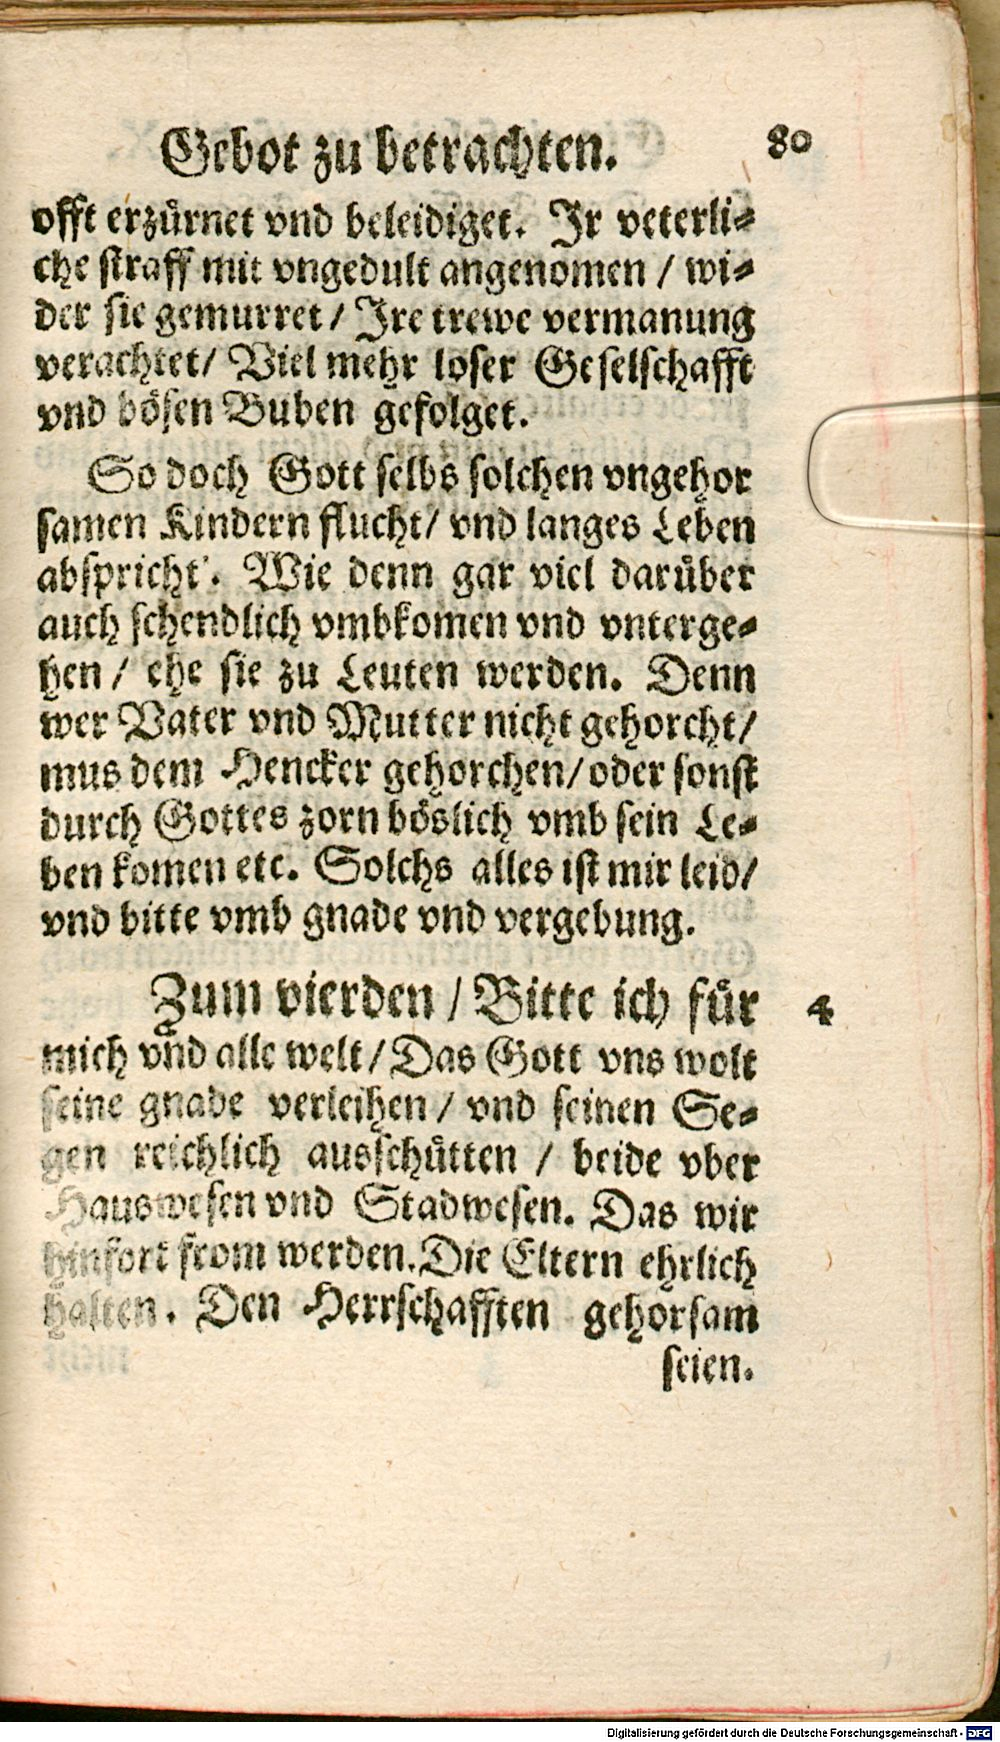 Gebot zu betrachten. 80
offt erzürnet vnd beleidiget. Jr veterli=
che straff mit vngedult angenomen / wi=
der sie gemurret / Jre trewe vermanung
verachtet / Viel mehr loser Geselschafft
vnd bösen Buben gefolget.
So doch Gott selbs solchen vngehor
samen Kindern flucht / vnd langes Leben
abspricht. Wie denn gar viel darüber
auch schendlich vmbkomen vnd vnterge=
hen / ehe sie zu Leuten werden. Denn
wer Vater vnd Mutter nicht gehorcht /
mus dem Hencker gehorchen / oder sonst
durch Gottes zorn böslich vmb sein Le=
ben komen etc. Solchs alles ist mir leid /
vnd bitte vmb gnade vnd vergebung.
Zum vierden / Bitte ich für 4
mich vnd alle welt / Das Gott vns wolt
seine gnade verleihen / vnd seinen Se=
gen reichlich ausschütten / beide vber
Hauswesen vnd Stadwesen. Das wir
hinfort from werden. Die Eltern ehrlich
halten. Den Herrschafften gehorsam
seien.
Digitalisierung gefördert durch die Deutsche Forschungsgemeinschaft - DFG